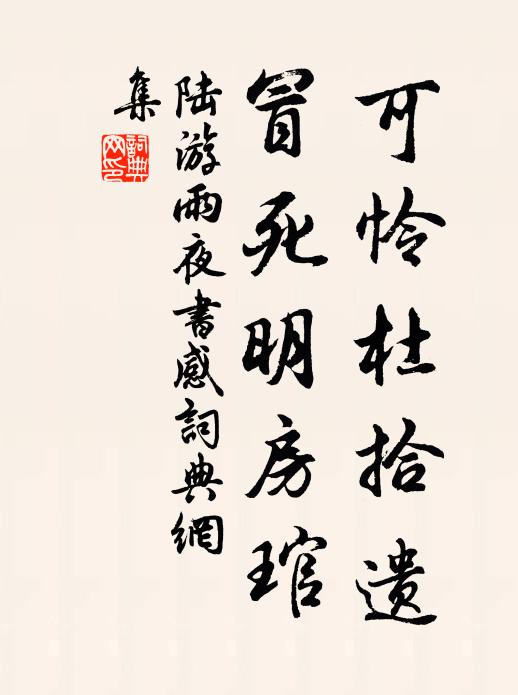 可怜杜拾遗
冒死明房琯
陆游雨夜書感詞典網
集
詞典
网印